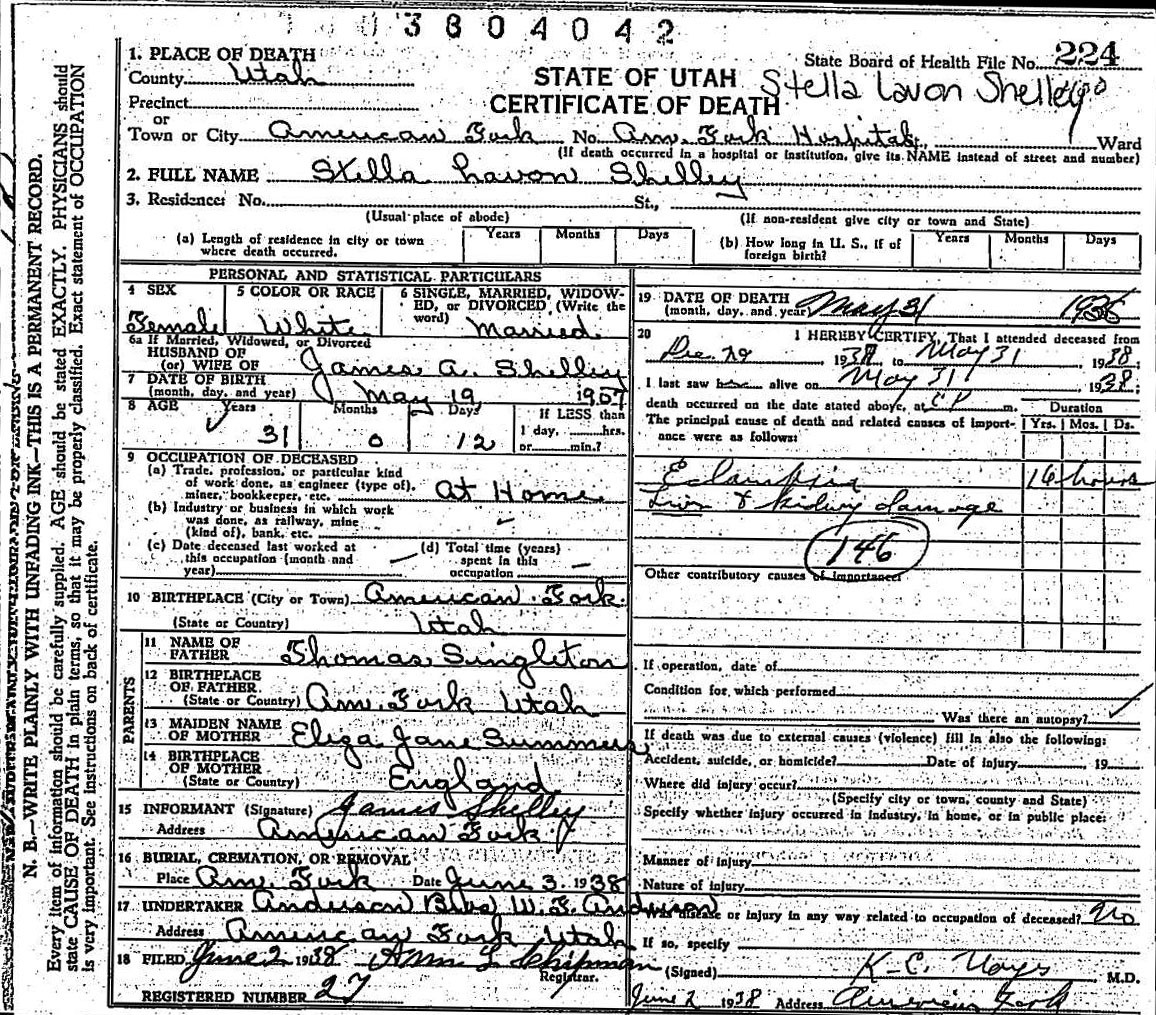 3804042
1. PLACE OF DEATH
State Board of Health File No. 224
County Utah
STATE OF UTAH
Stella Lavon Shelley
Precinct
CERTIFICATE OF DEATH
or
Town or City American Fork No. Am. Fork Hospital, Ward
(If death occurred in a hospital or institution, give its NAME instead of street and number)
2. FULL NAME Stella Lavon Shelley
3. Residence: No. St.,
(Usual place of abode) (If non-resident give city or town and State)
(a) Length of residence in city or town where death occurred. Years Months Days
(b) How long in U. S., if of foreign birth? Years Months Days
PERSONAL AND STATISTICAL PARTICULARS
4 SEX
Female
5 COLOR OR RACE
White
6 SINGLE, MARRIED, WIDOW-
ED, or DIVORCED (Write the
word) Married
6a If Married, Widowed, or Divorced
HUSBAND OF
(or) WIFE OF James A. Shelley
7 DATE OF BIRTH
(month, day, and year) May 19 1907
8 AGE Years Months Days If LESS than
31 0 12 1 day, hrs.
or min.?
9 OCCUPATION OF DECEASED
(a) Trade, profession, or particular kind
of work done, as engineer (type of),
miner, bookkeeper, etc. At Home
(b) Industry or business in which work
was done, as railway, mine
(kind of), bank, etc.
(c) Date deceased last worked at
this occupation (month and
year)
(d) Total time (years)
spent in this
occupation
10 BIRTHPLACE (City or Town) American Fork
(State or Country) Utah
PARENTS
11 NAME OF
FATHER Thomas Singleton
12 BIRTHPLACE
OF FATHER
(State or Country) Am. Fork Utah
13 MAIDEN NAME
OF MOTHER Eliza Jane Summers
14 BIRTHPLACE
OF MOTHER
(State or Country) England
15 INFORMANT (Signature) James Shelley
Address American Fork
16 BURIAL, CREMATION, OR REMOVAL
Place Am. Fork Date June 3 1938
17 UNDERTAKER Anderson Bros W. F. Anderson
Address American Fork Utah
18 FILED June 2 1938 L Chipman
Registrar.
REGISTERED NUMBER 27
19 DATE OF DEATH
(month, day, and year) May 31
20 I HEREBY CERTIFY, That I attended deceased from
Dec. 29 193 to May 31, 1938
I last saw alive on May 31, 1938;
death occurred on the date stated above, at m.
The principal cause of death and related causes of import-
ance were as follows:
Duration
Yrs. Mos. Ds.
Eclampsia 16 hours
Liver & kidney damage
146
Other contributory causes of importance:
If operation, date of
Condition for which performed
Was there an autopsy?
If death was due to external causes (violence) fill in also the following:
Accident, suicide, or homicide? Date of injury 19
Where did injury occur?
(Specify city or town, county and State)
Specify whether injury occurred in industry, in home, or in public place:
Manner of injury
Nature of injury
Was disease or injury in any way related to occupation of deceased? No
If so, specify
(Signed) K. C. M.D.
June 2 1938 Address American Fork
N. B.—WRITE PLAINLY WITH UNFADING INK—THIS IS A PERMANENT RECORD.
Every item of information should be carefully supplied. AGE should be stated EXACTLY. PHYSICIANS should
state CAUSE OF DEATH in plain terms, so that it may be properly classified. Exact statement of OCCUPATION
is very important. See instructions on back of certificate.